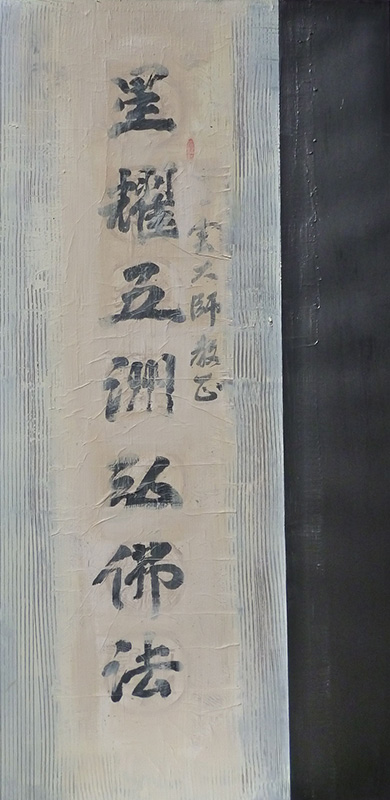 雲大師教正
星耀五洲弘佛法